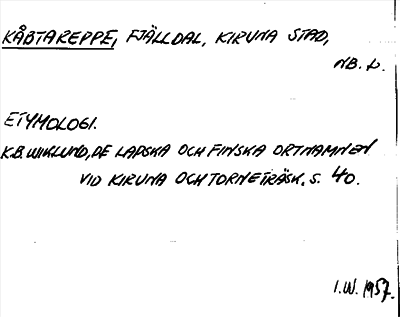 KÅBTAREPPE, FJÄLLDAL, KIRUNA STAD,
NB. L.
ETYMOLOGI.
K.B. WIKLUND, DE LAPSKA OCH FINSKA ORTNAMNEN
VID KIRUNA OCH TORNETRÄSK, S. 40.
I.W. 1957.